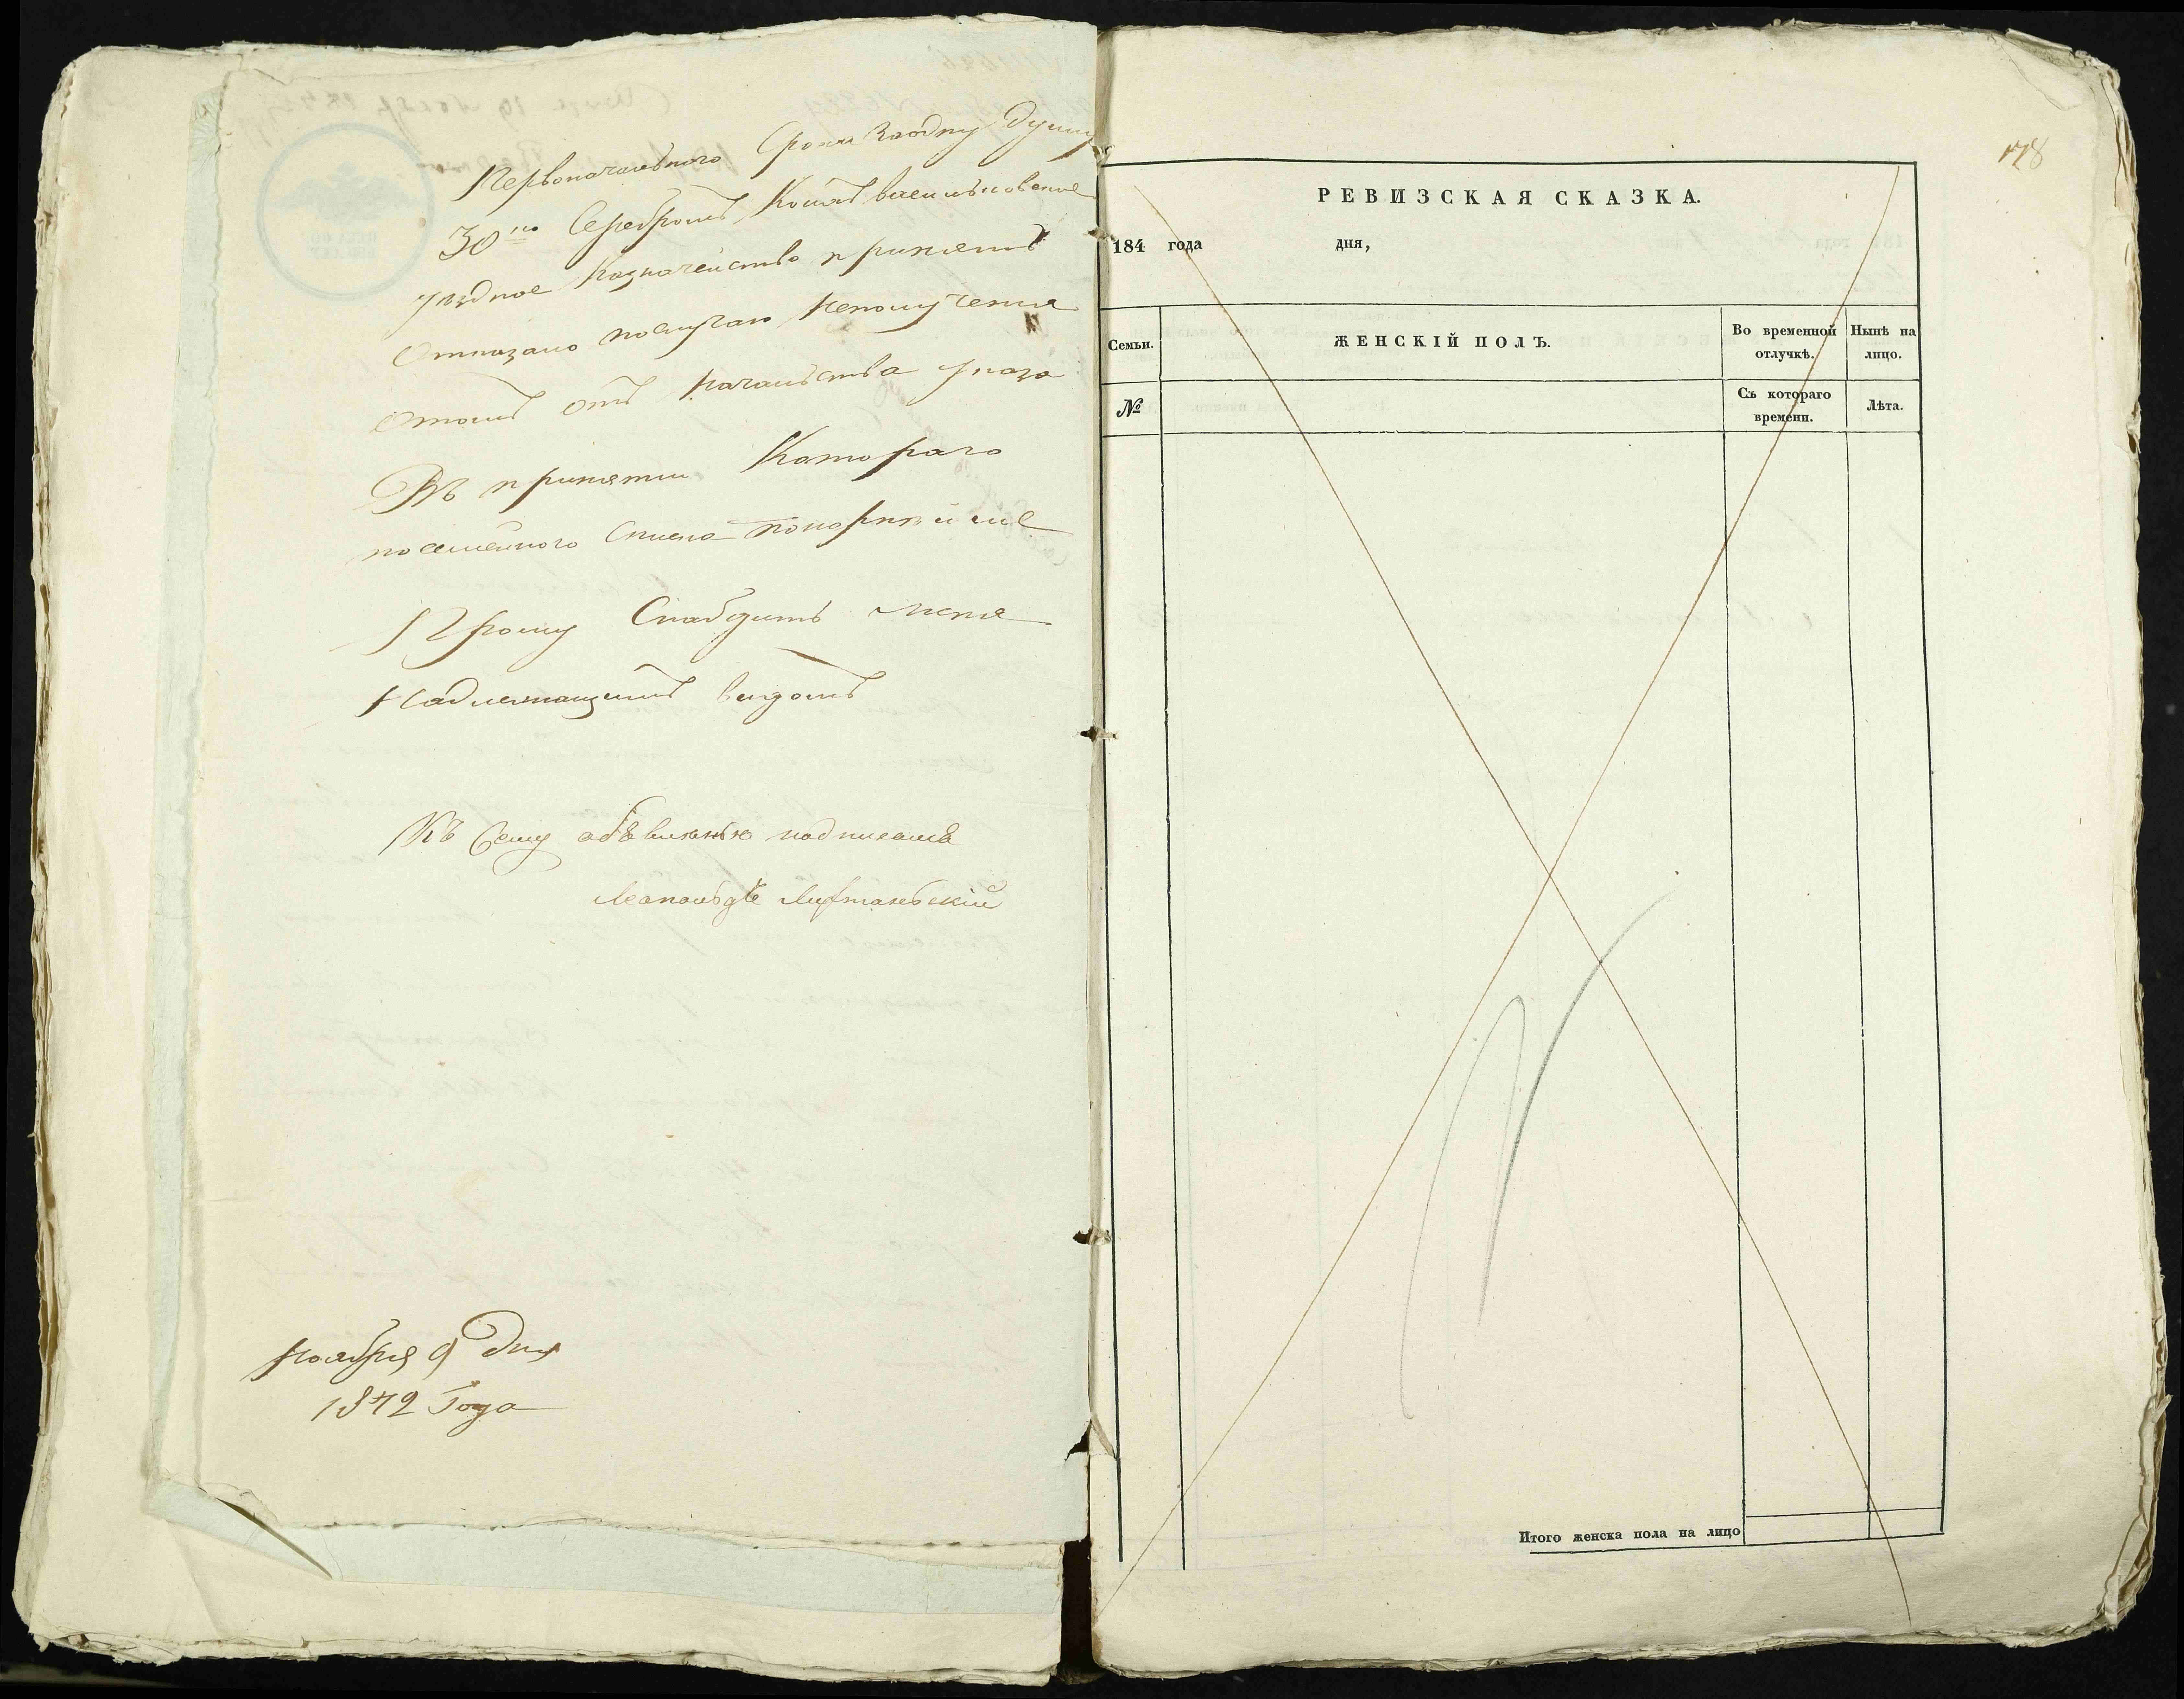 Первоначального Срока Заодну душу
30 ко Серебромъ, Коихъ васильковское
уѣздное Казначейство принять
Отказано послучаю неполучения
Отомъ отъ начальства указа
Въ принятии Котораго
посемейного Списка покорнѣйше
Прошу Снабдить меня
Надлежащимъ видомъ
Къ Сему объявленію подписалъ
ноября 9 дня
1842 Года
178
РЕВИЗСКАЯ СКАЗКА.
184 года дня,
Семьи. ЖЕНСКІЙ ПОЛЪ. Во временной отлучкѣ. Нынѣ на лицо.
№ Съ котораго времени. Лѣта.
Итого женска пола на лицо